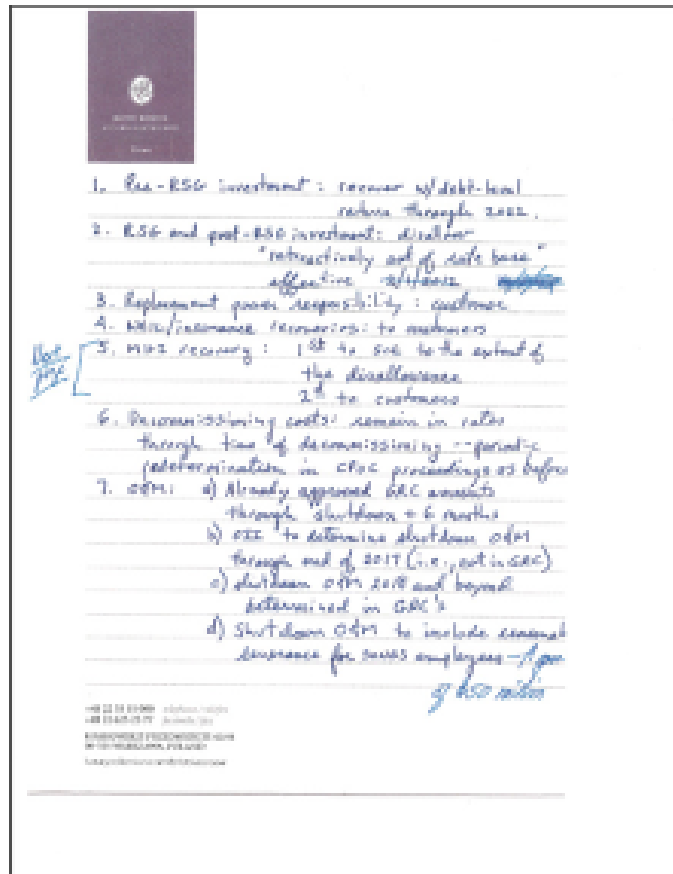 1. Pre-RSG investment: recover w/debt-level
return through 2022.
2. RSG and post-RSG investment: disallow
"retroactively out of rate base"
effective 2/1/2012
3. Replacement power responsibility: customer
4. NEIL/insurance recoveries: to customers
5. MHI recovery: 1st to SCE to the extent of
the disallowance
2nd to customers
6. Decommissioning costs: remain in rates
through time of decommissioning -- periodic
redetermination in CPUC proceedings as before
7. O&M: a) Already approved GRC amounts
through shutdown + 6 months
b) OII to determine shutdown O&M
through end of 2017 (i.e., not in GRC)
c) shutdown O&M 2018 and beyond
determined in GRC's
d) Shutdown O&M to include
severance for SONGS employees